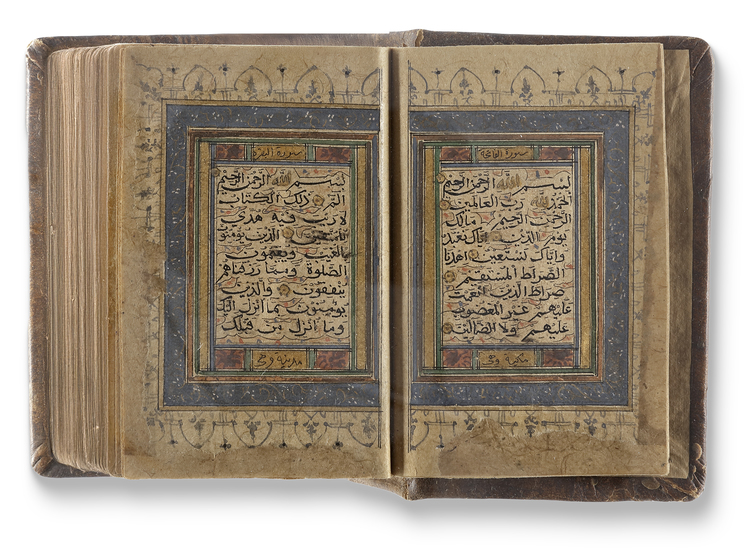 سورة الفاتحة
بسم الله الرحمن الرحيم
الحمد لله رب العالمين
الرحمن الرحيم مالك
يوم الدين اياك نعبد
واياك نستعين اهدنا
الصراط المستقيم
صراط الذين انعمت
عليهم غير المغضوب
عليهم ولا الضالين
مكية وهي
سورة البقرة
بسم الله الرحمن الرحيم
الم ذلك الكتاب
لا ريب فيه هدى
للمتقين الذين يؤمنون
بالغيب ويقيمون
الصلوة ومما رزقناهم
ينفقون والذين
يؤمنون بما انزل اليك
وما انزل من قبلك
مدنية وهي